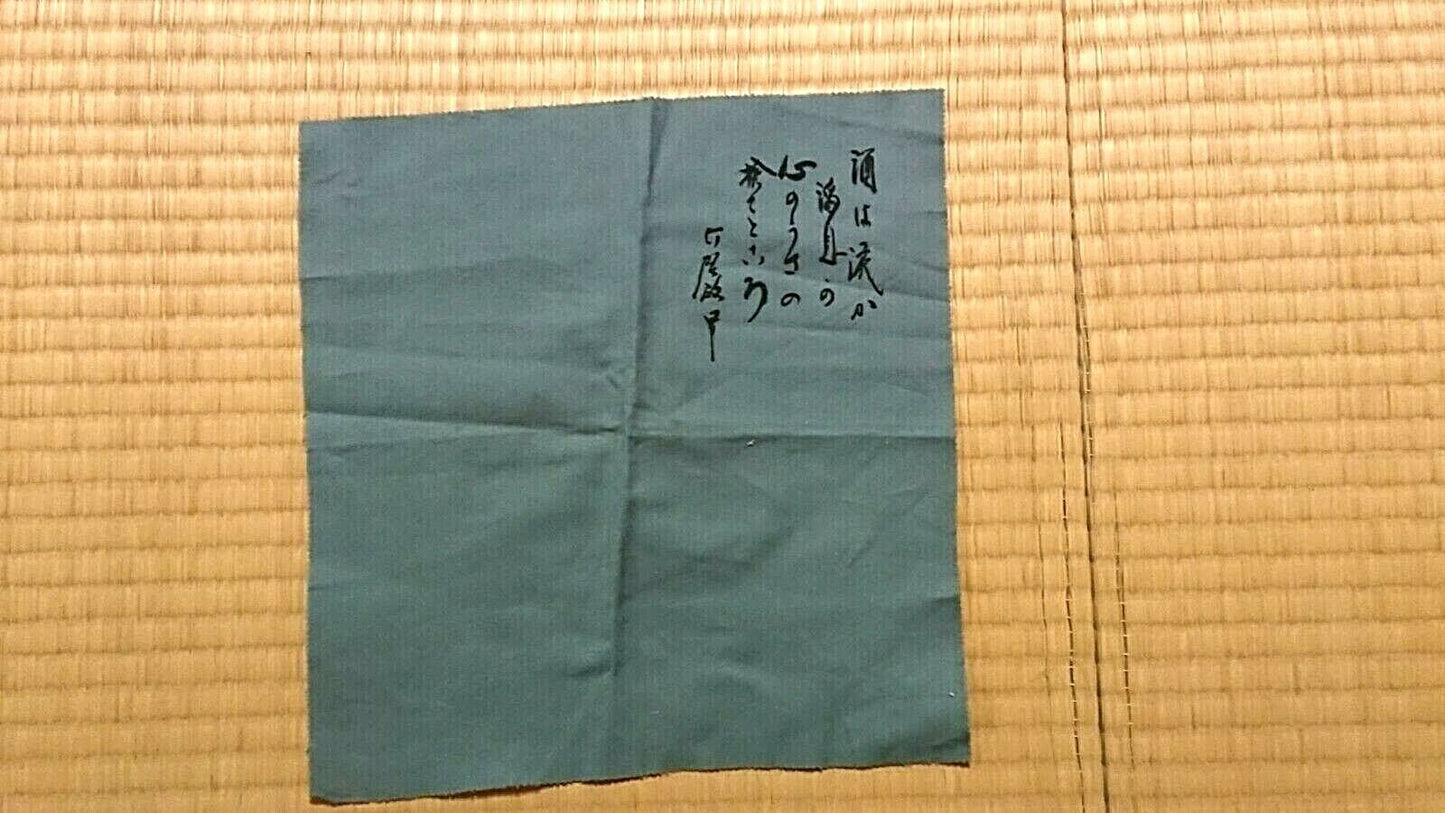 酒は涙か
溜息か
心のうさの
捨てどころ